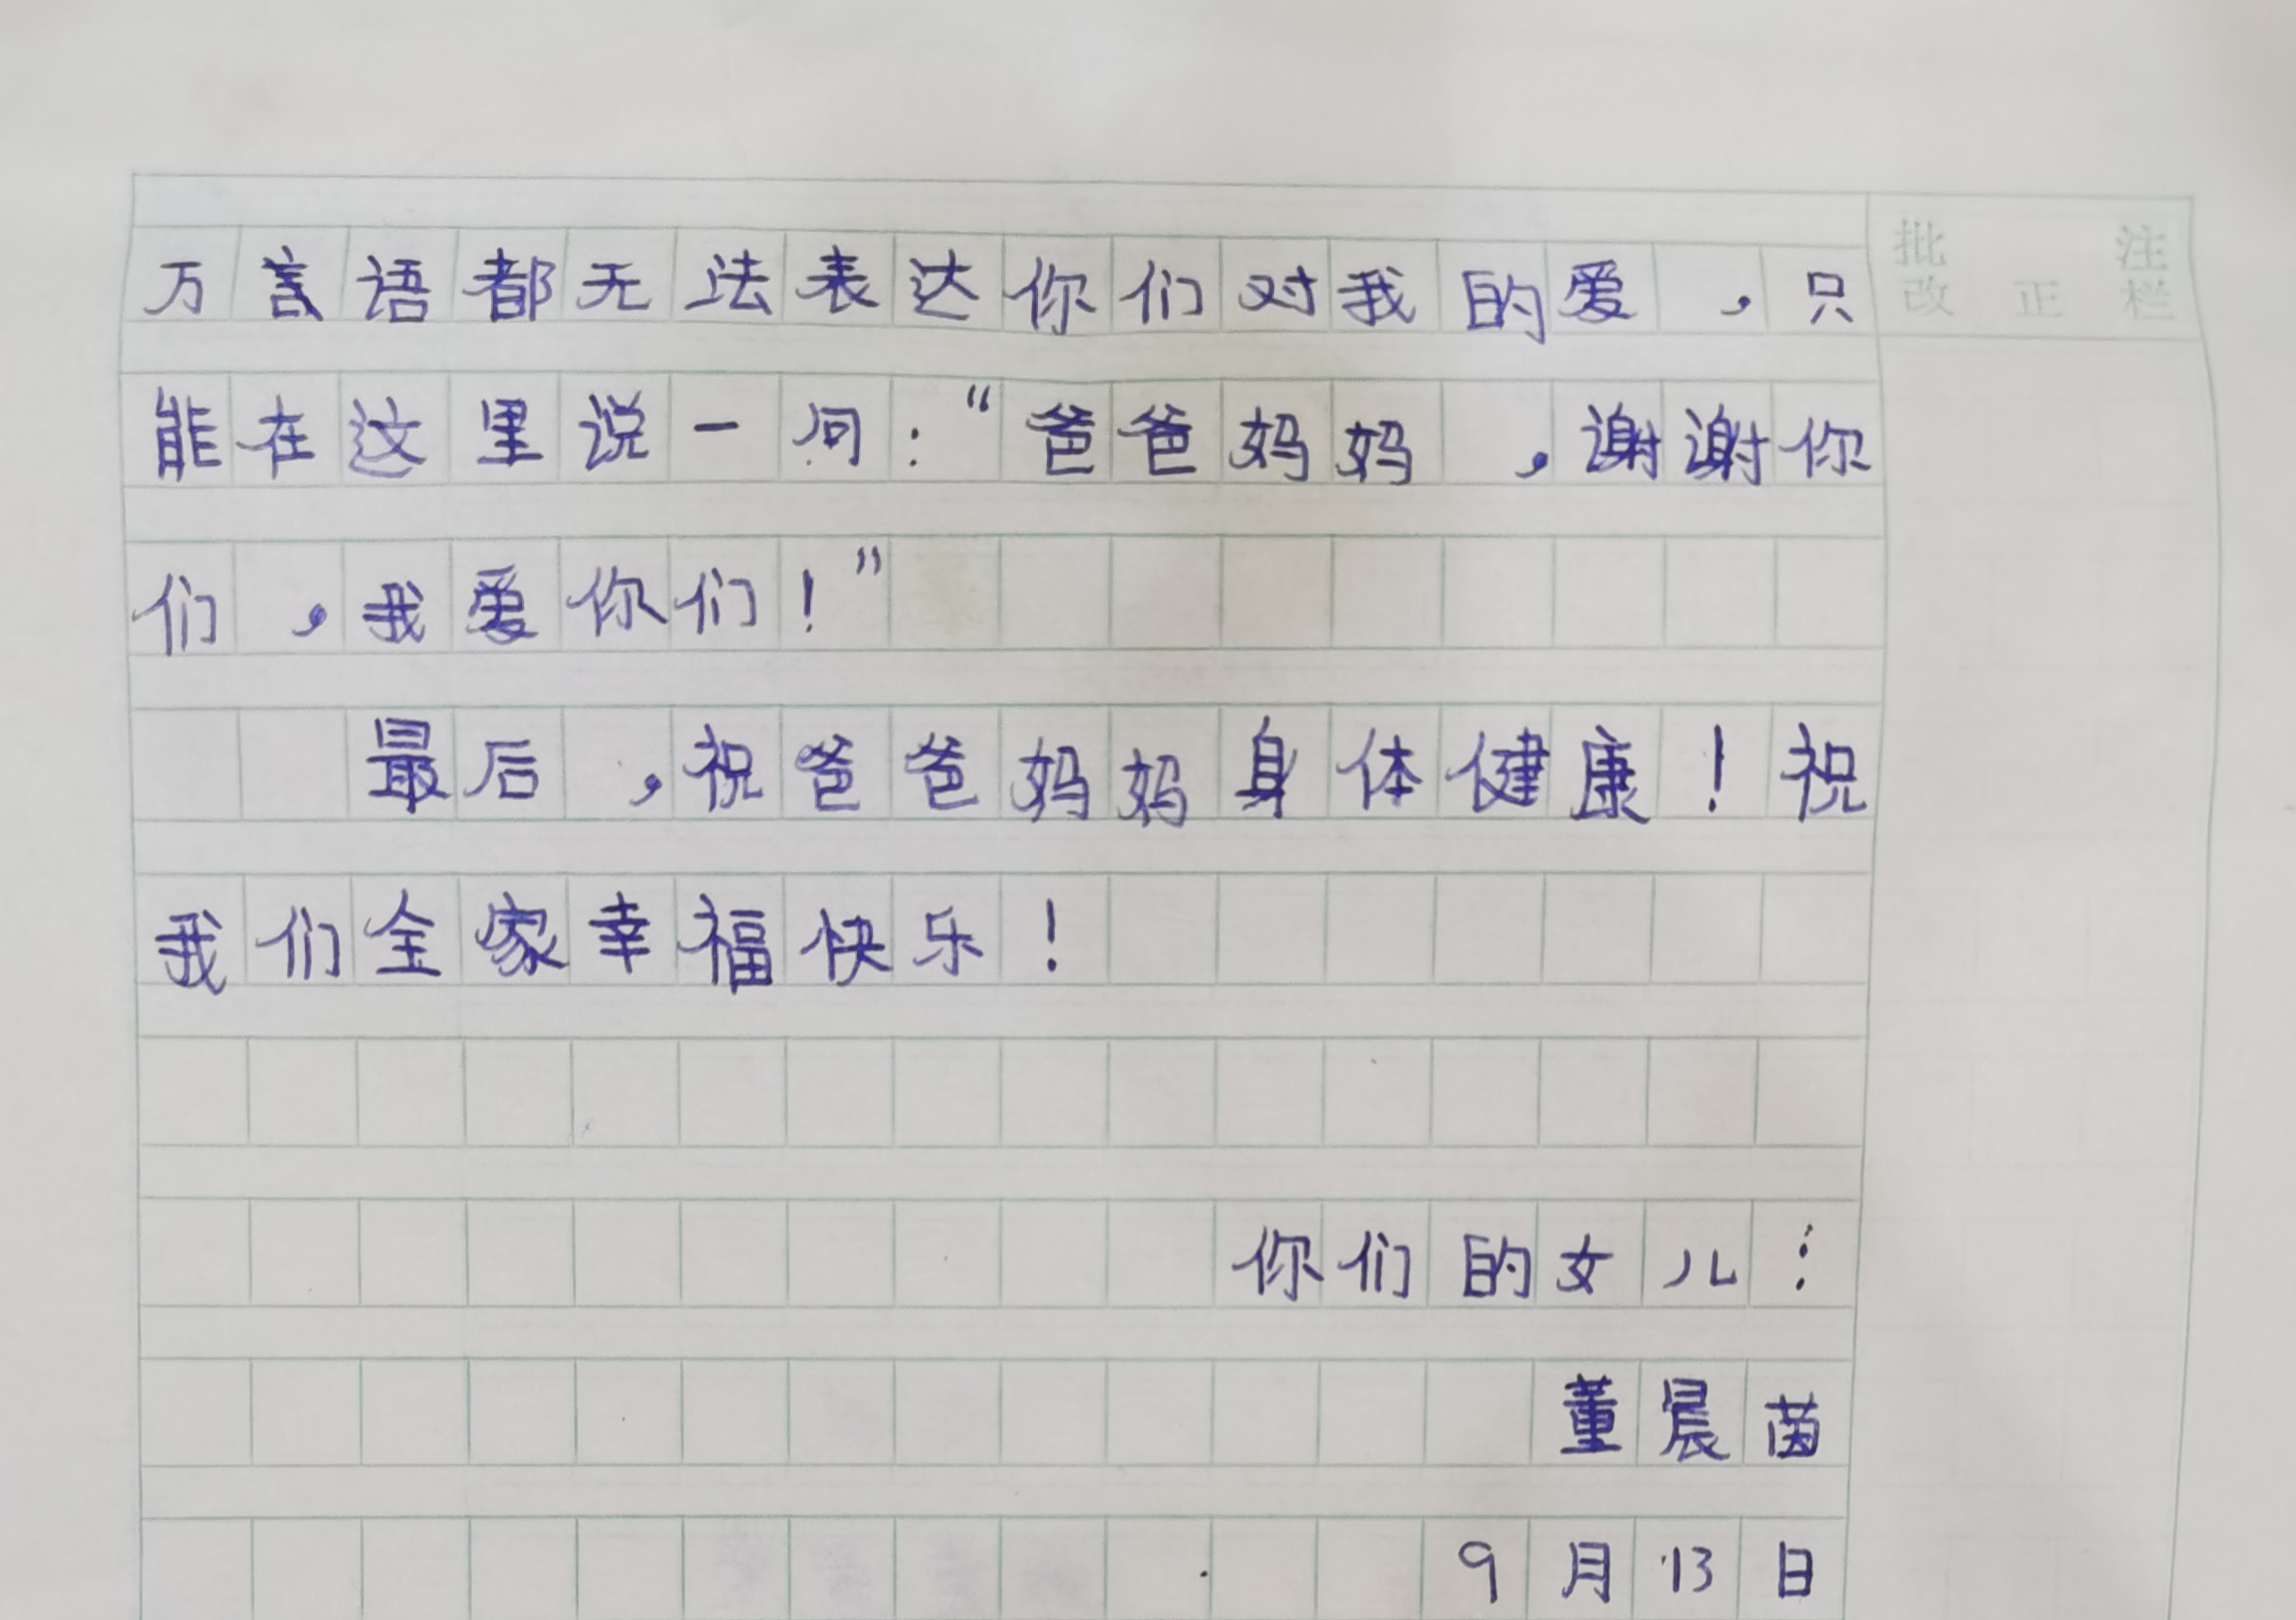 万言语都无法表达你们对我的爱，只
能在这里说一问：“爸爸妈妈，谢谢你
们，我爱你们！”
最后，祝爸爸妈妈身体健康！祝
我们全家幸福快乐！
你们的女儿：
董晨茵
9月13日
批注
改正栏